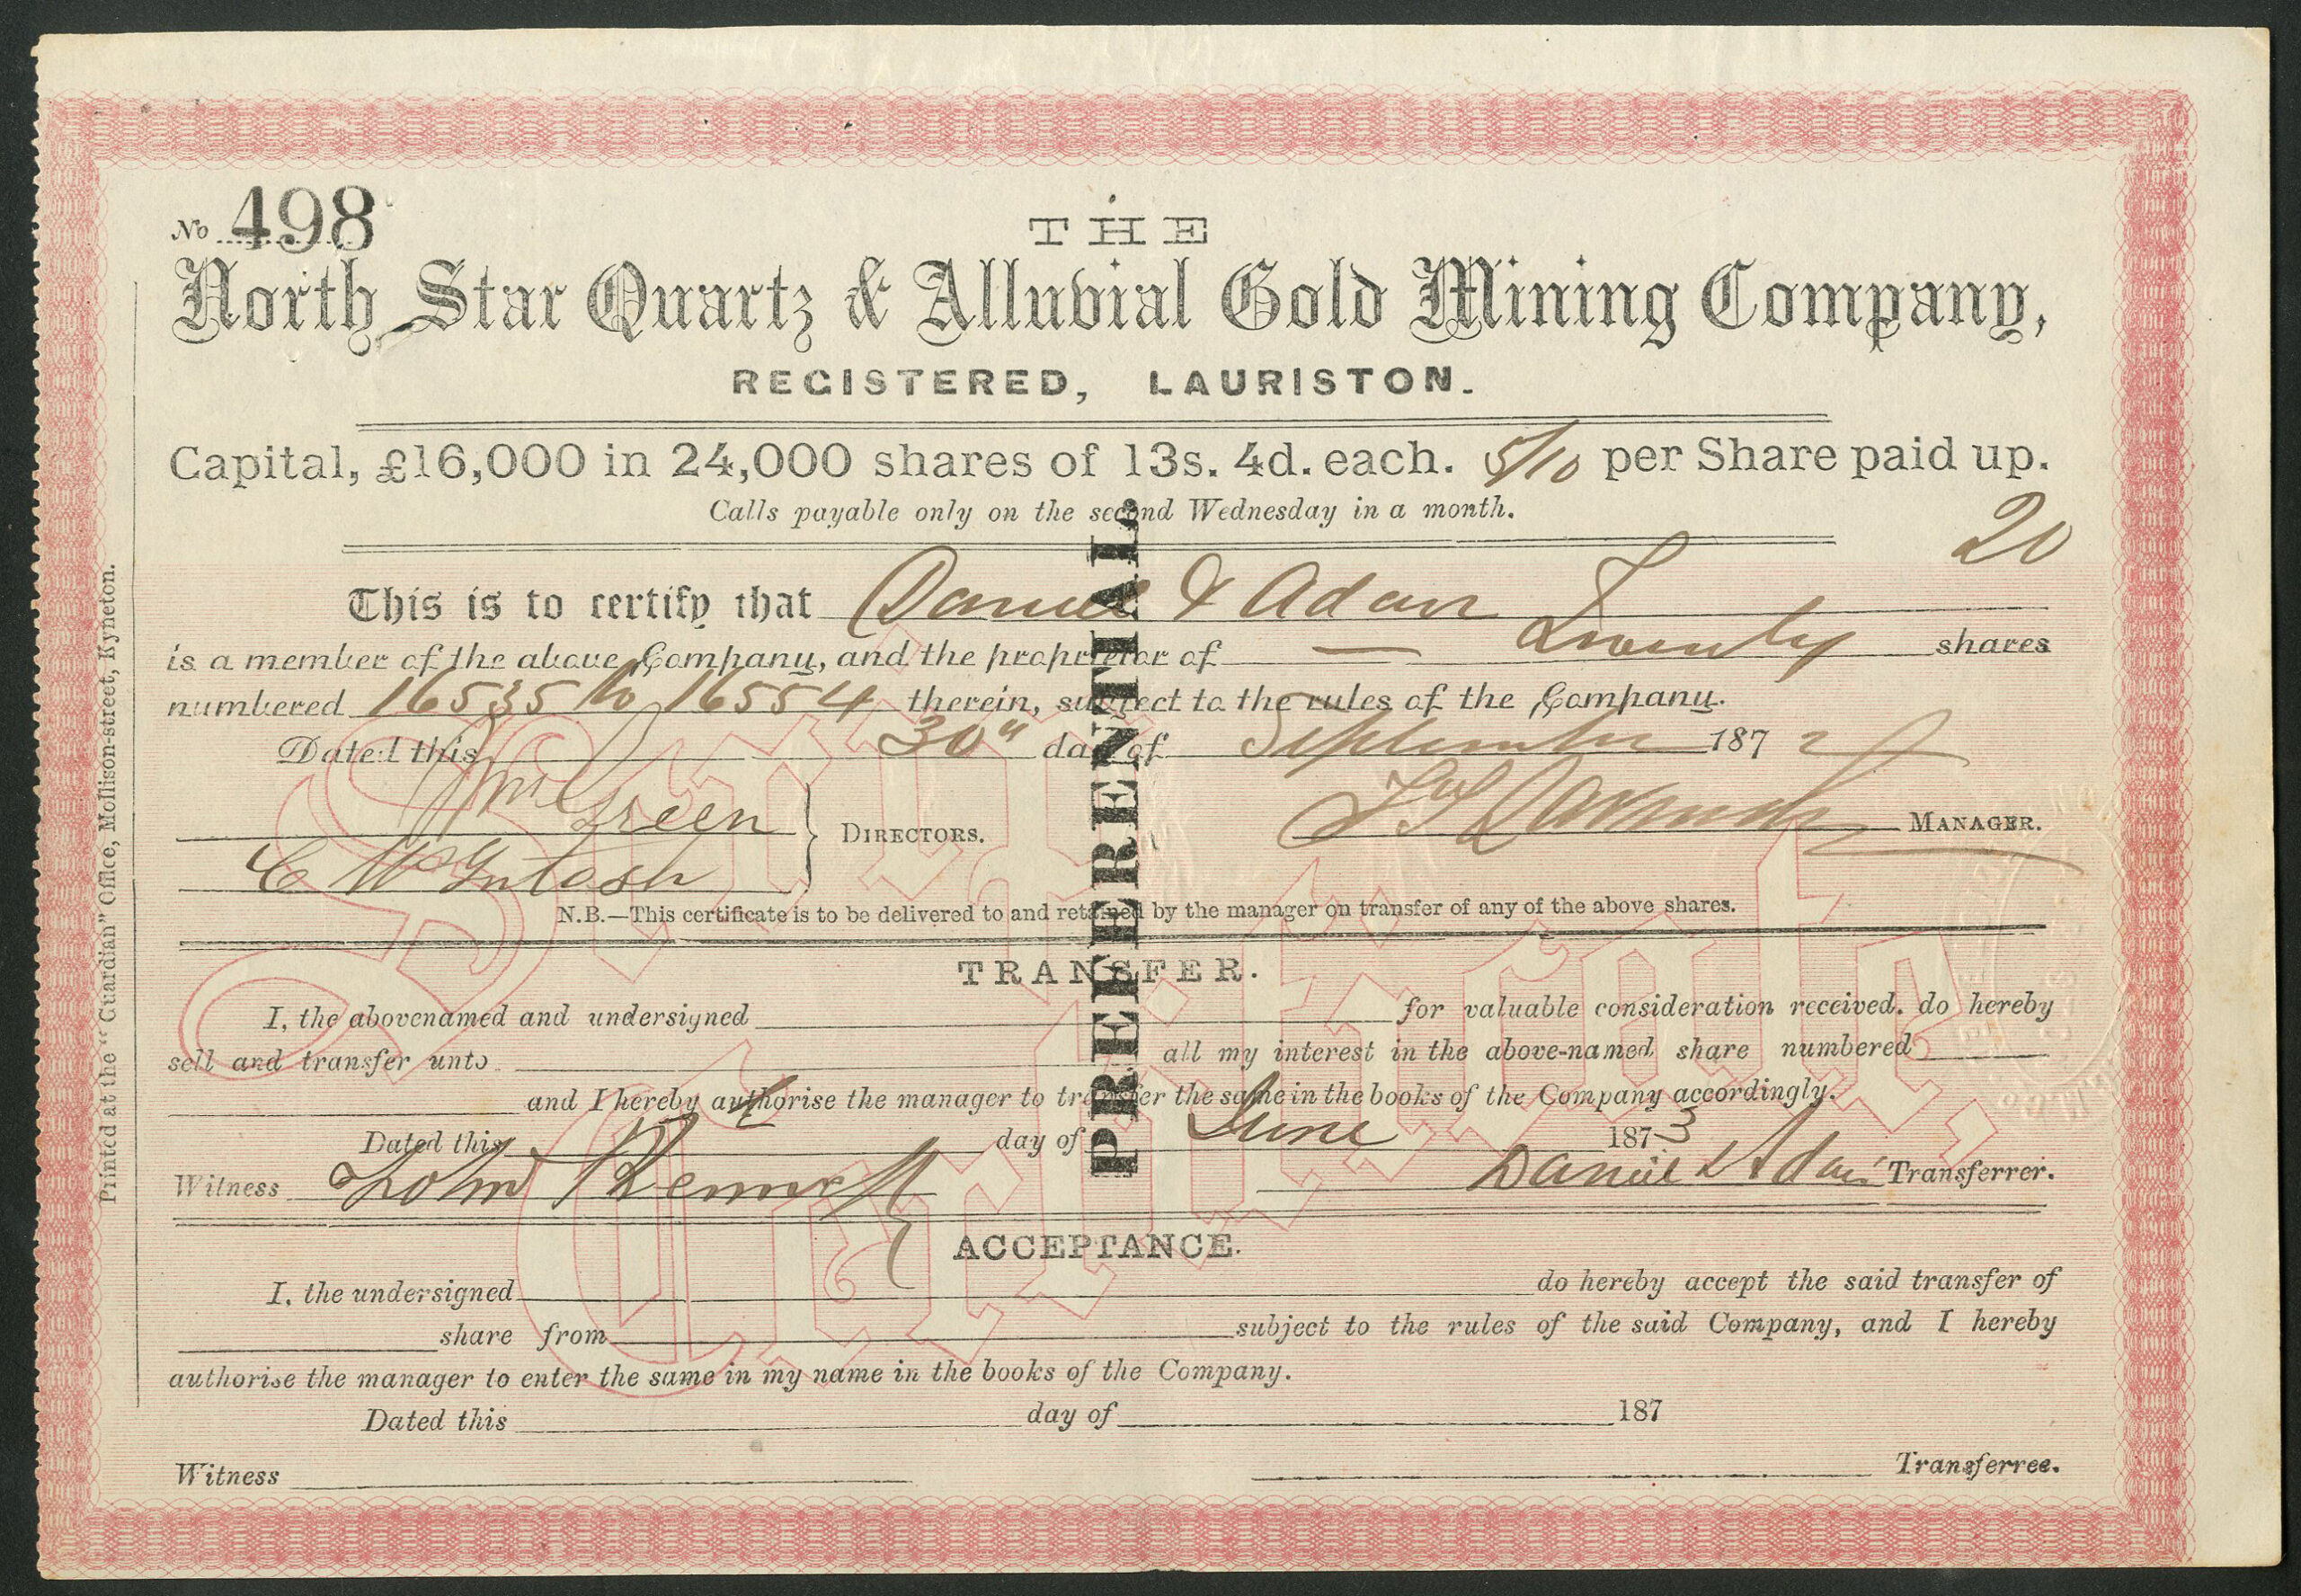 No 498
THE
North Star Quartz & Alluvial Gold Mining Company,
REGISTERED, LAURISTON.
Capital, £16,000 in 24,000 shares of 13s. 4d. each. 5/10 per Share paid up.
Calls payable only on the second Wednesday in a month.
20
This is to certify that Daniel & Adam
is a member of the above Company, and the proprietor of — Twenty shares
numbered 16535 to 16554 therein, subject to the rules of the Company.
Dated this 30" day of September 1872
Wm Green
C McIntosh
DIRECTORS.
MANAGER.
N.B.—This certificate is to be delivered to and retained by the manager on transfer of any of the above shares.
TRANSFER.
I, the abovenamed and undersigned for valuable consideration received, do hereby
sell and transfer unto all my interest in the above-named share numbered
and I hereby authorise the manager to transfer the same in the books of the Company accordingly.
Dated this day of June 1873
Witness John Daniel & Adam Transferrer.
ACCEPTANCE.
I, the undersigned do hereby accept the said transfer of
share from subject to the rules of the said Company, and I hereby
authorise the manager to enter the same in my name in the books of the Company.
Dated this day of 187
Witness Transferree.
PREFERENTIAL
Scrip
Certificate,
Printed at the "Guardian" Office, Mollison-street, Kyneton.